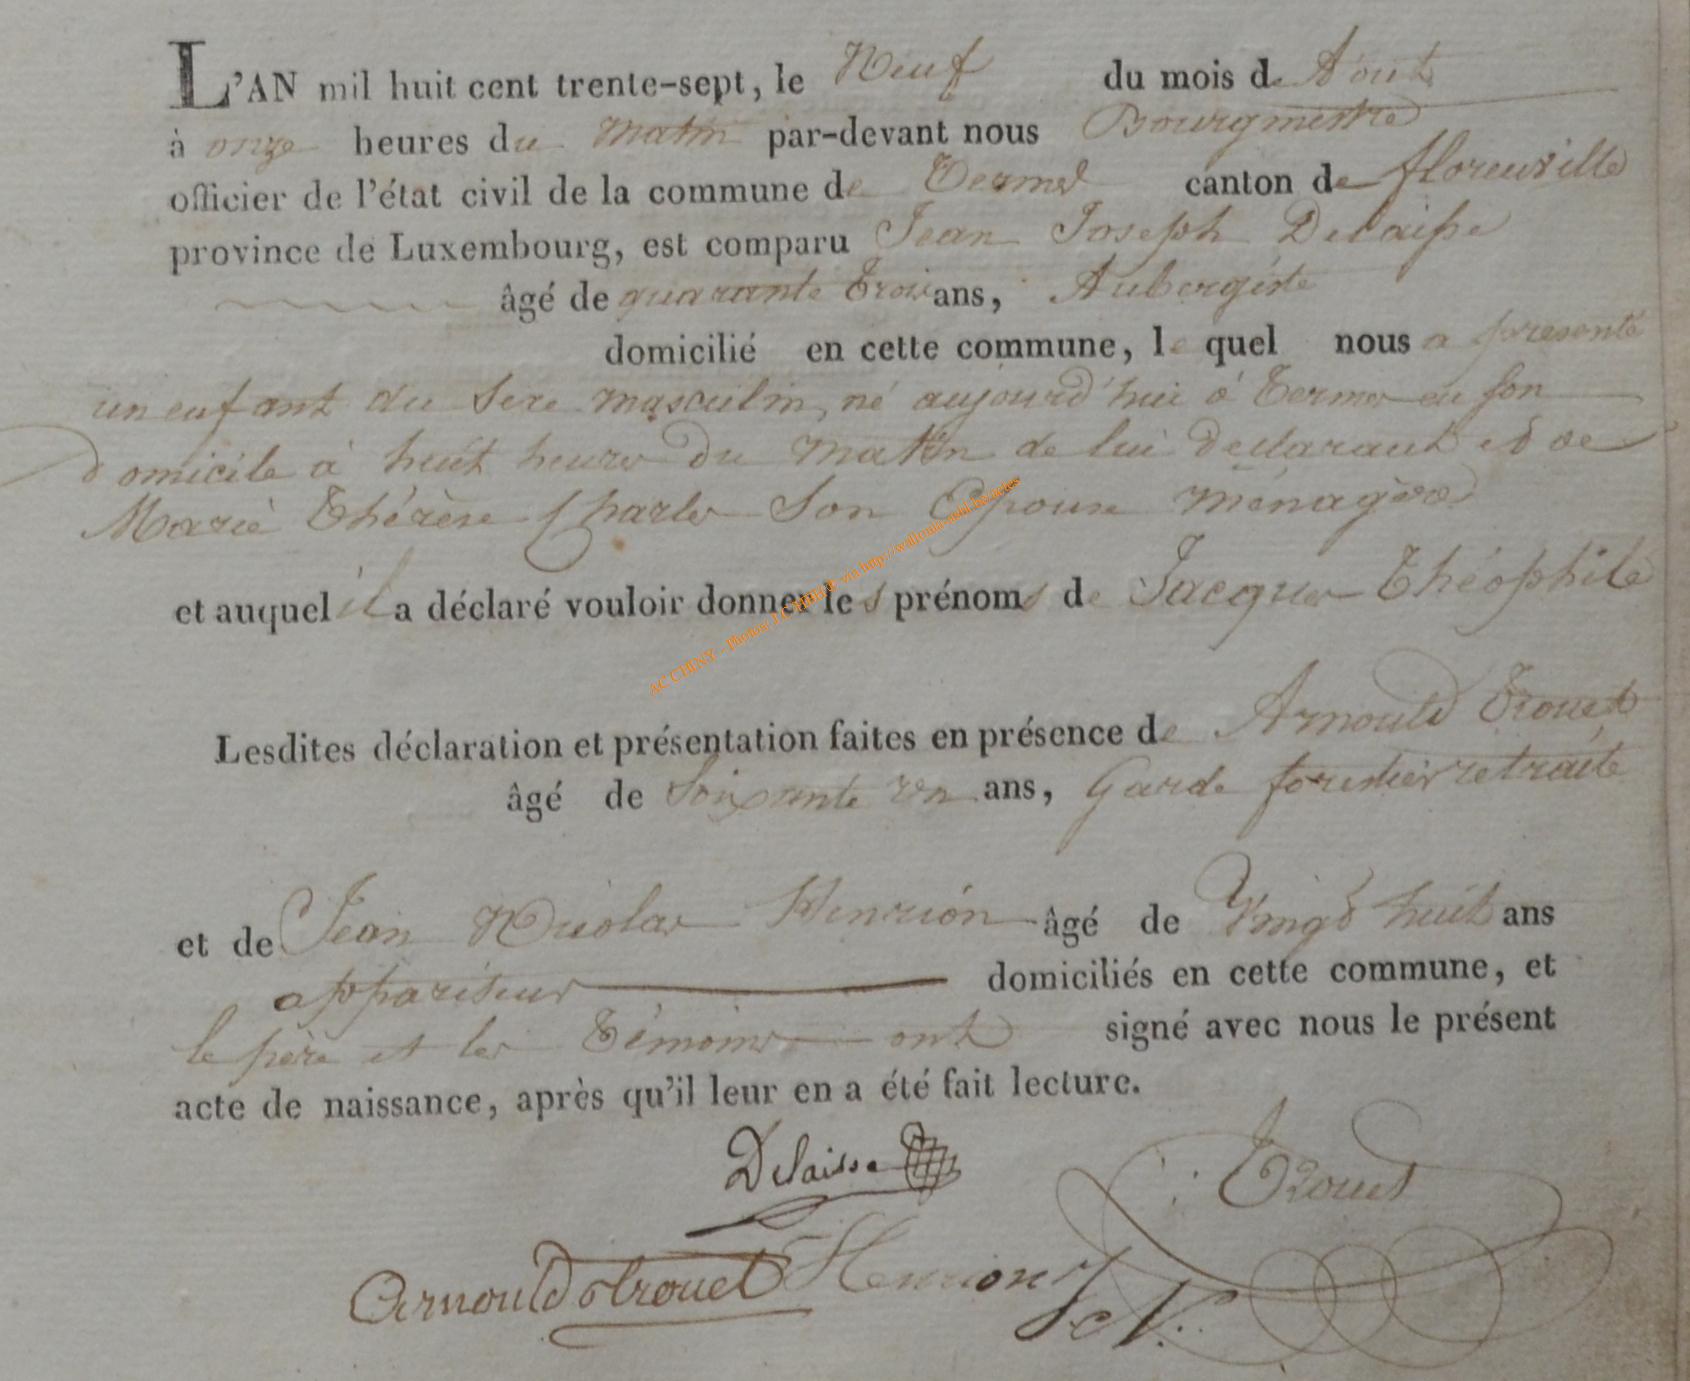 L'AN mil huit cent trente-sept, le Neuf du mois de Aout
à onze heures du matin par-devant nous Bourgmestre
officier de l'état civil de la commune de Termes canton de florenville
province de Luxembourg, est comparu Jean Joseph Delaisse
âgé de quarante trois ans, Aubergiste
domicilié en cette commune, le quel nous a presenté
un enfant du sexe masculin, né aujourd'hui à Termes en son
domicile à huit heures du matin de lui declarant et de
Marie Thérèse Charles son Epouse ménagère
et auquel il a déclaré vouloir donner les prénoms de Jacques Théophile
Lesdites déclaration et présentation faites en présence de Arnould Trouet
âgé de soixante un ans, Garde forestier retraité
et de Jean Nicolas Henrion âgé de Vingt huit ans
appariteur domiciliés en cette commune, et
le père et les Témoins ont signé avec nous le présent
acte de naissance, après qu'il leur en a été fait lecture.
Delaisse
Trouet
Arnould trouet Henrion J N.
AC CHINY - Photos J.C. via http://wallonia-asbl.be/actes